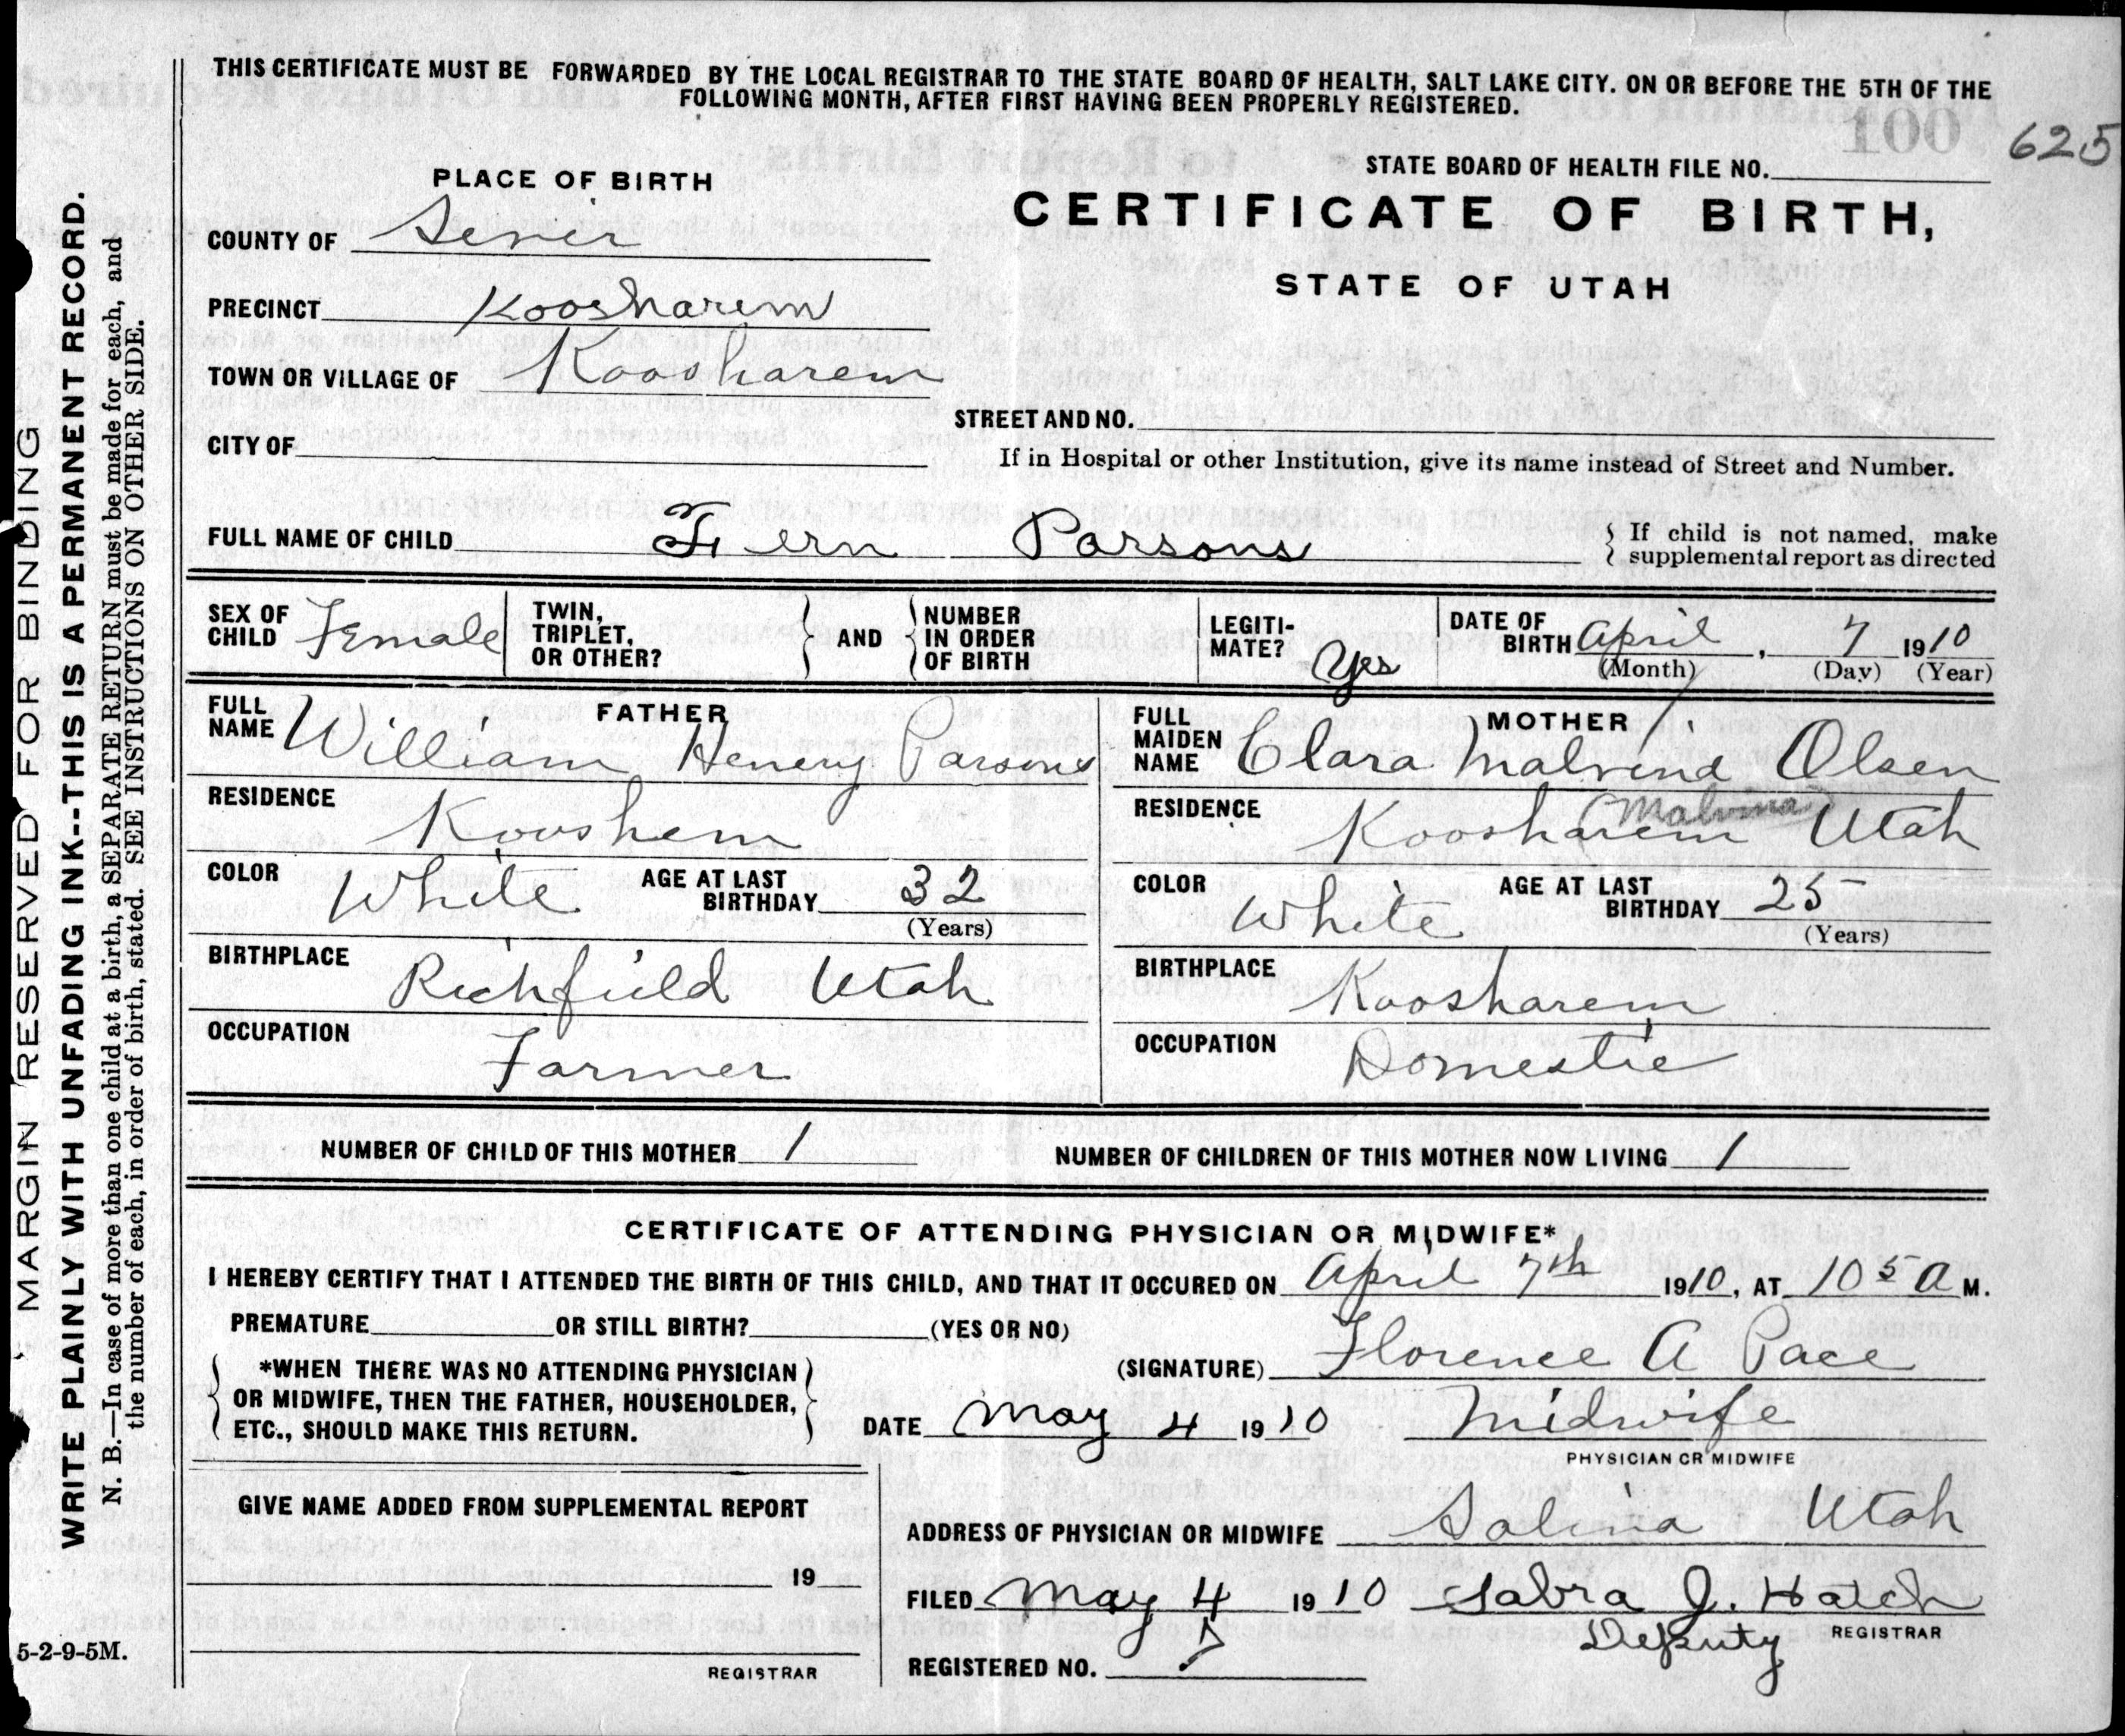 THIS CERTIFICATE MUST BE FORWARDED BY THE LOCAL REGISTRAR TO THE STATE BOARD OF HEALTH, SALT LAKE CITY. ON OR BEFORE THE 5TH OF THE
FOLLOWING MONTH, AFTER FIRST HAVING BEEN PROPERLY REGISTERED.
100 625
STATE BOARD OF HEALTH FILE NO.
PLACE OF BIRTH
CERTIFICATE OF BIRTH,
STATE OF UTAH
COUNTY OF Sevier
PRECINCT Koosharem
TOWN OR VILLAGE OF Koosharem
STREET AND NO.
CITY OF
If in Hospital or other Institution, give its name instead of Street and Number.
FULL NAME OF CHILD Fern Parsons
If child is not named, make
supplemental report as directed
SEX OF CHILD Female
TWIN, TRIPLET, OR OTHER?
AND
NUMBER IN ORDER OF BIRTH
LEGITI-MATE? Yes
DATE OF BIRTH April, 7 1910
(Month) (Day) (Year)
FATHER
FULL NAME William Henery Parsons
RESIDENCE Kooshem
COLOR White AGE AT LAST BIRTHDAY 32
(Years)
BIRTHPLACE Richfield Utah
OCCUPATION Farmer
MOTHER
FULL MAIDEN NAME Clara Malvind Olsen
(Malvina)
RESIDENCE Koosharem Utah
COLOR White AGE AT LAST BIRTHDAY 25
(Years)
BIRTHPLACE Koosharem
OCCUPATION Domestic
NUMBER OF CHILD OF THIS MOTHER 1 NUMBER OF CHILDREN OF THIS MOTHER NOW LIVING 1
CERTIFICATE OF ATTENDING PHYSICIAN OR MIDWIFE*
I HEREBY CERTIFY THAT I ATTENDED THE BIRTH OF THIS CHILD, AND THAT IT OCCURED ON April 7th 1910, AT 10 5 A M.
PREMATURE OR STILL BIRTH? (YES OR NO)
(SIGNATURE) Florence A Pace
*WHEN THERE WAS NO ATTENDING PHYSICIAN
OR MIDWIFE, THEN THE FATHER, HOUSEHOLDER,
ETC., SHOULD MAKE THIS RETURN.
DATE May 4 1910 Midwife
PHYSICIAN OR MIDWIFE
GIVE NAME ADDED FROM SUPPLEMENTAL REPORT
19
REGISTRAR
ADDRESS OF PHYSICIAN OR MIDWIFE Salina Utah
FILED May 4 1910 Sabra J. Hatch
Deputy REGISTRAR
REGISTERED NO.
MARGIN RESERVED FOR BINDING
WRITE PLAINLY WITH UNFADING INK--THIS IS A PERMANENT RECORD.
N. B.—In case of more than one child at a birth, a SEPARATE RETURN must be made for each, and
the number of each, in order of birth, stated. SEE INSTRUCTIONS ON OTHER SIDE.
5-2-9-5M.